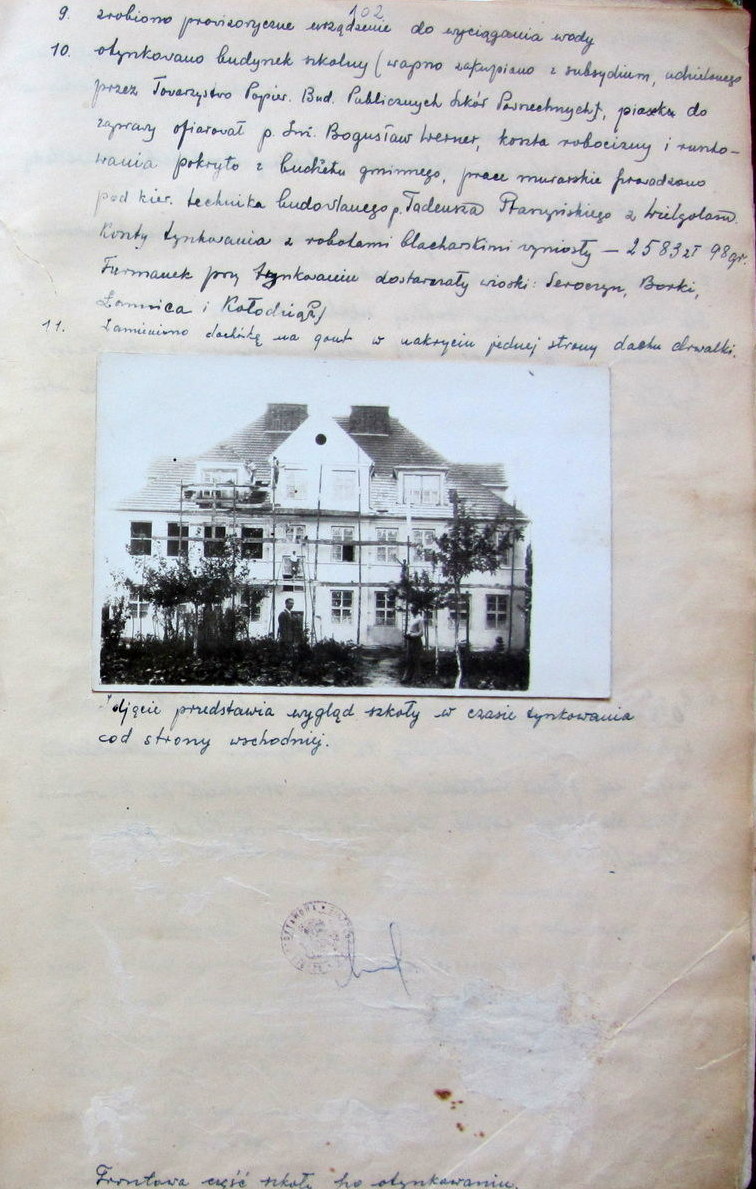 102
9. zrobiono prowizoryczne urządzenie do wyciągania wody
10. otynkowano budynek szkolny (wapno zakupiono z subsydium, udzielonego
przez Towarzystwo Popier. Bud. Publicznych Szkół Powszechnych), piasku do
zaprawy ofiarował p. Inż. Bogusław Werner, koszta robocizny i ruszto-
wania pokryto z budżetu gminnego, prace murarskie prowadzono
pod kier. technika budowlanego p. Tadeusza z Wielgolasu.
Koszty tynkowania z robotami blacharskimi wyniosły – 2583 zł 98 gr.
Furmanek przy tynkowaniu dostarczały wioski: Seroczyn, Borki,
Łomnica i Kołodziąż)
11. Zamieniono dachówkę na gont w nakryciu jednej strony dachu drwalki.
Zdjęcie przedstawia wygląd szkoły w czasie tynkowania
od strony wschodniej.
Frontowa część szkoły po otynkowaniu.